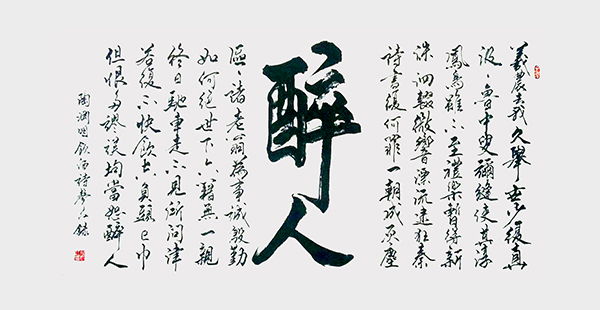 羲農去我久舉世少復真
汲々魯中叟彌縫使其淳
鳳鳥雖不至禮樂暫得新
洙泗輟微響漂流逮狂秦
詩書復何罪一朝成灰塵
醉人
區々諸老翁為事誠殷勤
如何絕世下六籍無一親
終日馳車走不見所問津
若復不快飲空負頭上巾
但恨多謬誤君當恕醉人
陶淵明飲酒詩